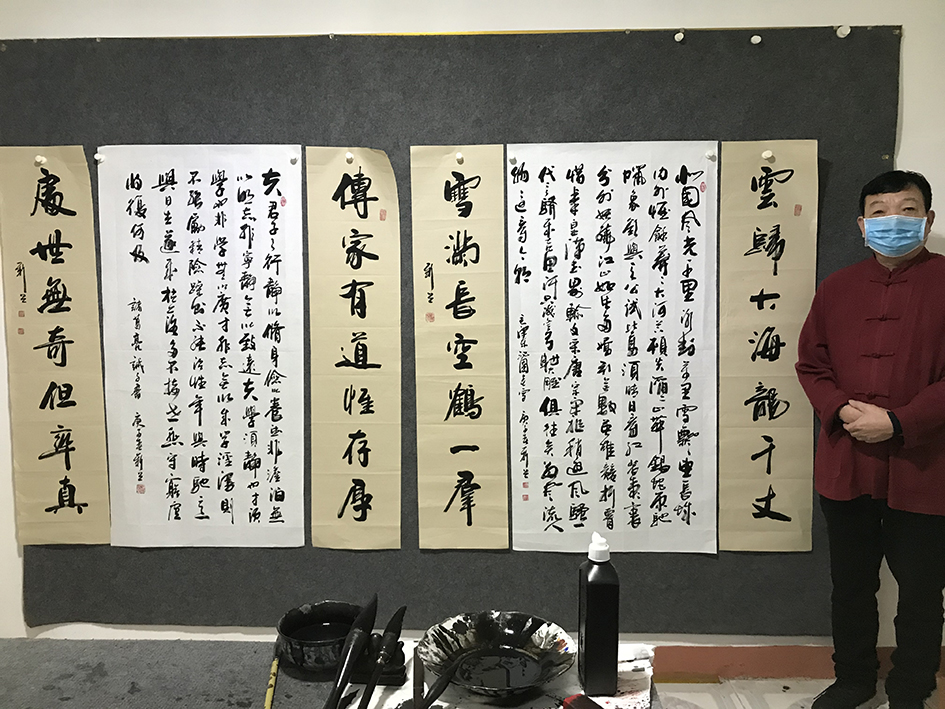 雲歸大海龍千丈
北國風光千里冰封萬里雪飄望長城
內外惟餘莽莽大河上下頓失滔滔山舞銀蛇原馳
蠟象欲與天公試比高須晴日看紅裝素裹
分外妖嬈江山如此多嬌引無數英雄競折腰
惜秦皇漢武略輸文采唐宗宋祖稍遜風騷一
代天驕成吉思汗只識彎弓射大雕俱往矣數風流人
物還看今朝
雪滿長空鶴一群
傳家有道惟存厚
夫君子之行靜以脩身儉以養德非澹泊無
以明志非寧靜無以致遠夫學須靜也才須
學也非學無以廣才非志無以成學淫慢則
不能勵精險躁則不能治性年與時馳意
與日去遂成枯落多不接世悲守窮廬
將復何及
諸葛亮誡子書
處世無奇但率真